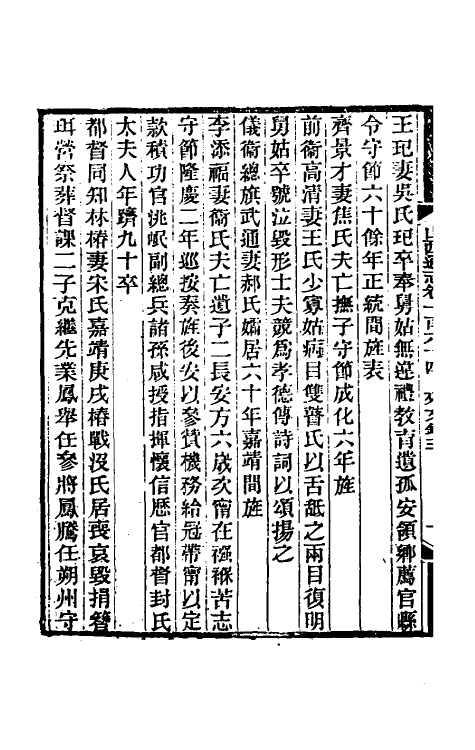 王玘妻吳氏玘卒奉舅姑無違禮教育遺孤安領鄉薦官縣
令守節六十餘年正統間旌表
齊景才妻焦氏夫亡撫子守節成化六年旌
前衞高清妻王氏少寡姑病目雙瞽氏以舌舐之兩目復明
舅姑卒號泣毀形士夫競爲孝德傳詩詞以頌揚之
儀衞總旗武通妻郝氏孀居六十年嘉靖間旌
李添福妻衞氏夫亡遺子二長安方六歲次甯在襁褓苦志
守節隆慶二年巡按奏旌後安以參贊機務給冠帶甯以定
款積功官洮岷副總兵諸孫咸授指揮懷信歷官都督封氏
太夫人年躋九十卒
都督同知林椿妻宋氏嘉靖庚戌椿戰沒氏居喪哀毀捐簪
珥營祭葬督課二子克繼先業鳳舉任參將鳳騰任朔州守
山西通志卷一百六十四